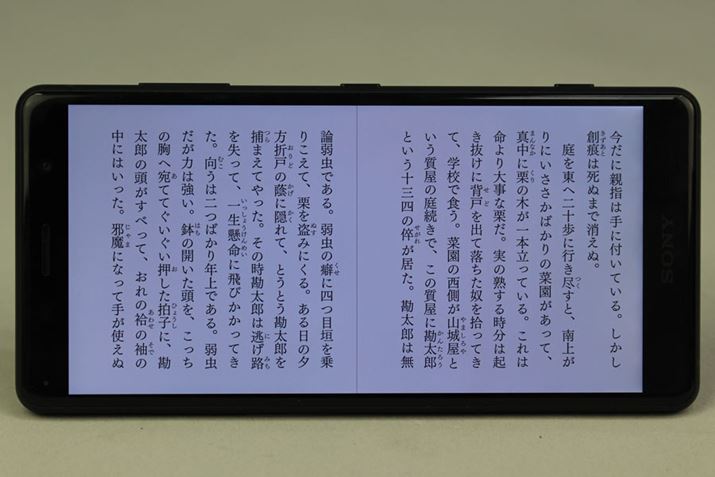 今だに親指は手に付いている。しかし
創痕は死ぬまで消えぬ。
庭を東へ二十歩に行き尽すと、南上が
りにいささかばかりの菜園があって、
真中に栗の木が一本立っている。これは
命より大事な栗だ。実の熟する時分は起
き抜けに背戸を出て落ちた奴を拾ってき
て、学校で食う。菜園の西側が山城屋と
いう質屋の庭続きで、この質屋に勘太郎
という十三四の倅が居た。勘太郎は無
論弱虫である。弱虫の癖に四つ目垣を乗
りこえて、栗を盗みにくる。ある日の夕
方折戸の蔭に隠れて、とうとう勘太郎を
捕まえてやった。その時勘太郎は逃げ路
を失って、一生懸命に飛びかかってき
た。向うは二つばかり年上である。弱虫
だが力は強い。鉢の開いた頭を、こっち
の胸へ宛ててぐいぐい押した拍子に、勘
太郎の頭がすべって、おれの袷の袖の
中にはいった。邪魔になって手が使えぬ
SONY